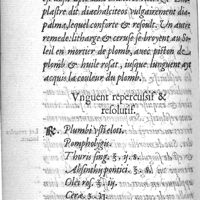 plastre dit diachalciteos vulgairement dia-
palma, lequel conforte & resoult. Un autre
remede. litharge & ceruse se broyent au So-
leil en mortier de plomb, avec piston de
plomb & huile rosat, iusque lunguent ayt
acquis la couleur du plomb.
Vnguent repercussif &
resolutif.
℞. Plumbi vsti eloti.
Pompholygis.
Thuris sing. ʒ. ij. s.
Absinthij pontici. ʒ. s.
Olei ros. ʒ. iij.
Ceræ